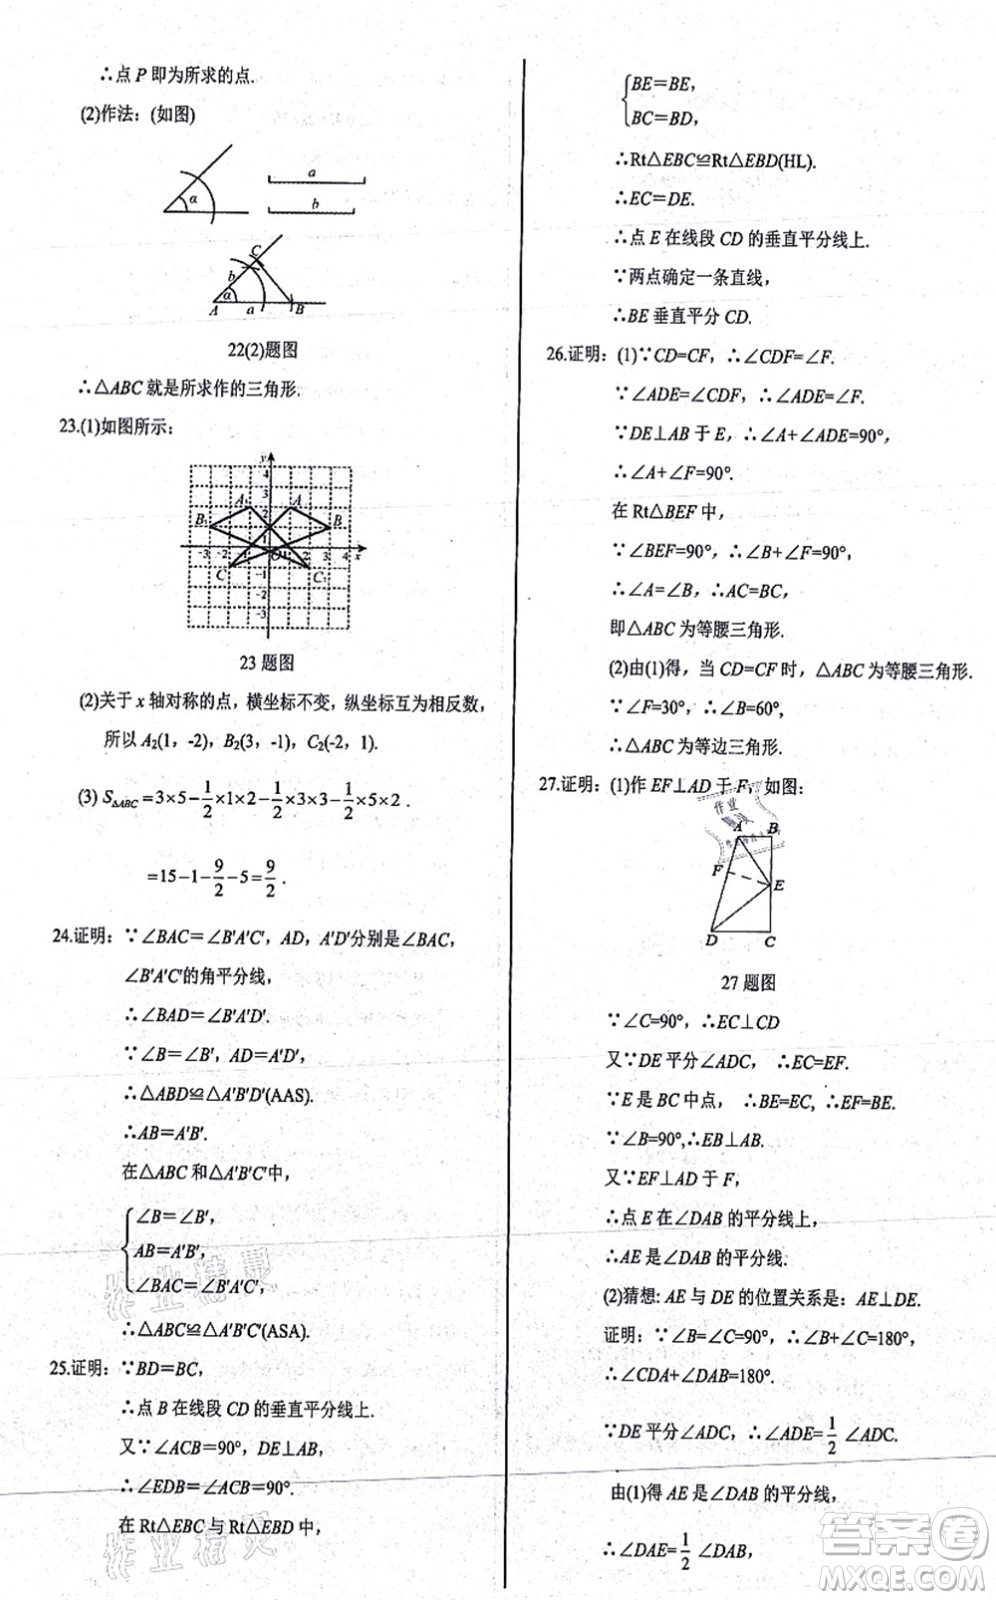 ∴点 P 即为所求的点.
(2)作法：(如图)
α
a
b
A
B
C
b
α
a
22(2)题图
∴△ABC 就是所求作的三角形.
23.(1)如图所示：
y
4
3
A₁ 2 A
B₁ 1 B
-3 -2 -1 O 1 2 3 4 x
C -1 C₁
-2
-3
23 题图
(2)关于 x 轴对称的点，横坐标不变，纵坐标互为相反数，
所以 A₂(1，-2)，B₂(3，-1)，C₂(-2，1).
(3) S△ABC＝3×5－1/2×1×2－1/2×3×3－1/2×5×2 .
＝15－1－9/2－5＝9/2 .
24.证明：∵∠BAC＝∠B′A′C′，AD，A′D′分别是∠BAC，
∠B′A′C′的角平分线，
∴∠BAD＝∠B′A′D′.
∵∠B＝∠B′，AD＝A′D′，
∴△ABD≌△A′B′D′(AAS).
∴AB＝A′B′.
在△ABC 和△A′B′C′中，
∠B＝∠B′，
AB＝A′B′，
∠BAC＝∠B′A′C′，
∴△ABC≌△A′B′C′(ASA).
25.证明：∵BD＝BC，
∴点 B 在线段 CD 的垂直平分线上.
又∵∠ACB＝90°，DE⊥AB，
∴∠EDB＝∠ACB＝90°.
在 Rt△EBC 与 Rt△EBD 中，
BE＝BE，
BC＝BD，
∴Rt△EBC≌Rt△EBD(HL).
∴EC＝DE.
∴点 E 在线段 CD 的垂直平分线上.
∵两点确定一条直线，
∴BE 垂直平分 CD.
26.证明：(1)∵CD=CF，∴∠CDF=∠F.
∵∠ADE=∠CDF，∴∠ADE=∠F.
∵DE⊥AB 于 E，∴∠A+∠ADE=90°，
∴∠A+∠F=90°.
在 Rt△BEF 中，
∵∠BEF=90°，∴∠B+∠F=90°，
∴∠A=∠B，∴AC=BC，
即△ABC 为等腰三角形.
(2)由(1)得，当 CD=CF 时，△ABC 为等腰三角形.
∵∠F=30°，∴∠B=60°，
∴△ABC 为等边三角形.
27.证明：(1)作 EF⊥AD 于 F，如图：
A B
F
E
D C
27 题图
∵∠C=90°，∴EC⊥CD
又∵DE 平分∠ADC， ∴EC=EF.
∵E 是 BC 中点， ∴BE=EC, ∴EF=BE.
∵∠B=90°,∴EB⊥AB.
又∵EF⊥AD 于 F，
∴点 E 在∠DAB 的平分线上，
∴AE 是∠DAB 的平分线.
(2)猜想: AE 与 DE 的位置关系是：AE⊥DE.
证明：∵∠B=∠C=90°，∴∠B+∠C=180°，
∴∠CDA+∠DAB=180°.
∵DE 平分∠ADC，∴∠ADE=1/2 ∠ADC.
由(1)得 AE 是∠DAB 的平分线，
∴∠DAE=1/2 ∠DAB，
作业精灵
作业精灵
答案圈
MXQE.COM